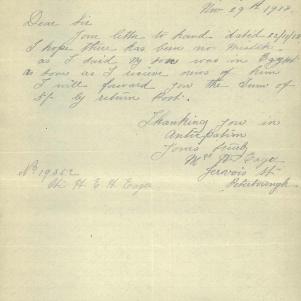 Nov 29th 1918
Dear Sir
Your letter to hand dated 22/11/18
I hope there has been no mistake
as I said my son was in Egypt
as soon as I receive news of him
I will forward you the Sum of
5/- by return Post.
Thanking you in
Anticipation
Yours truly
Mrs
Jervois St
Peterborough
No